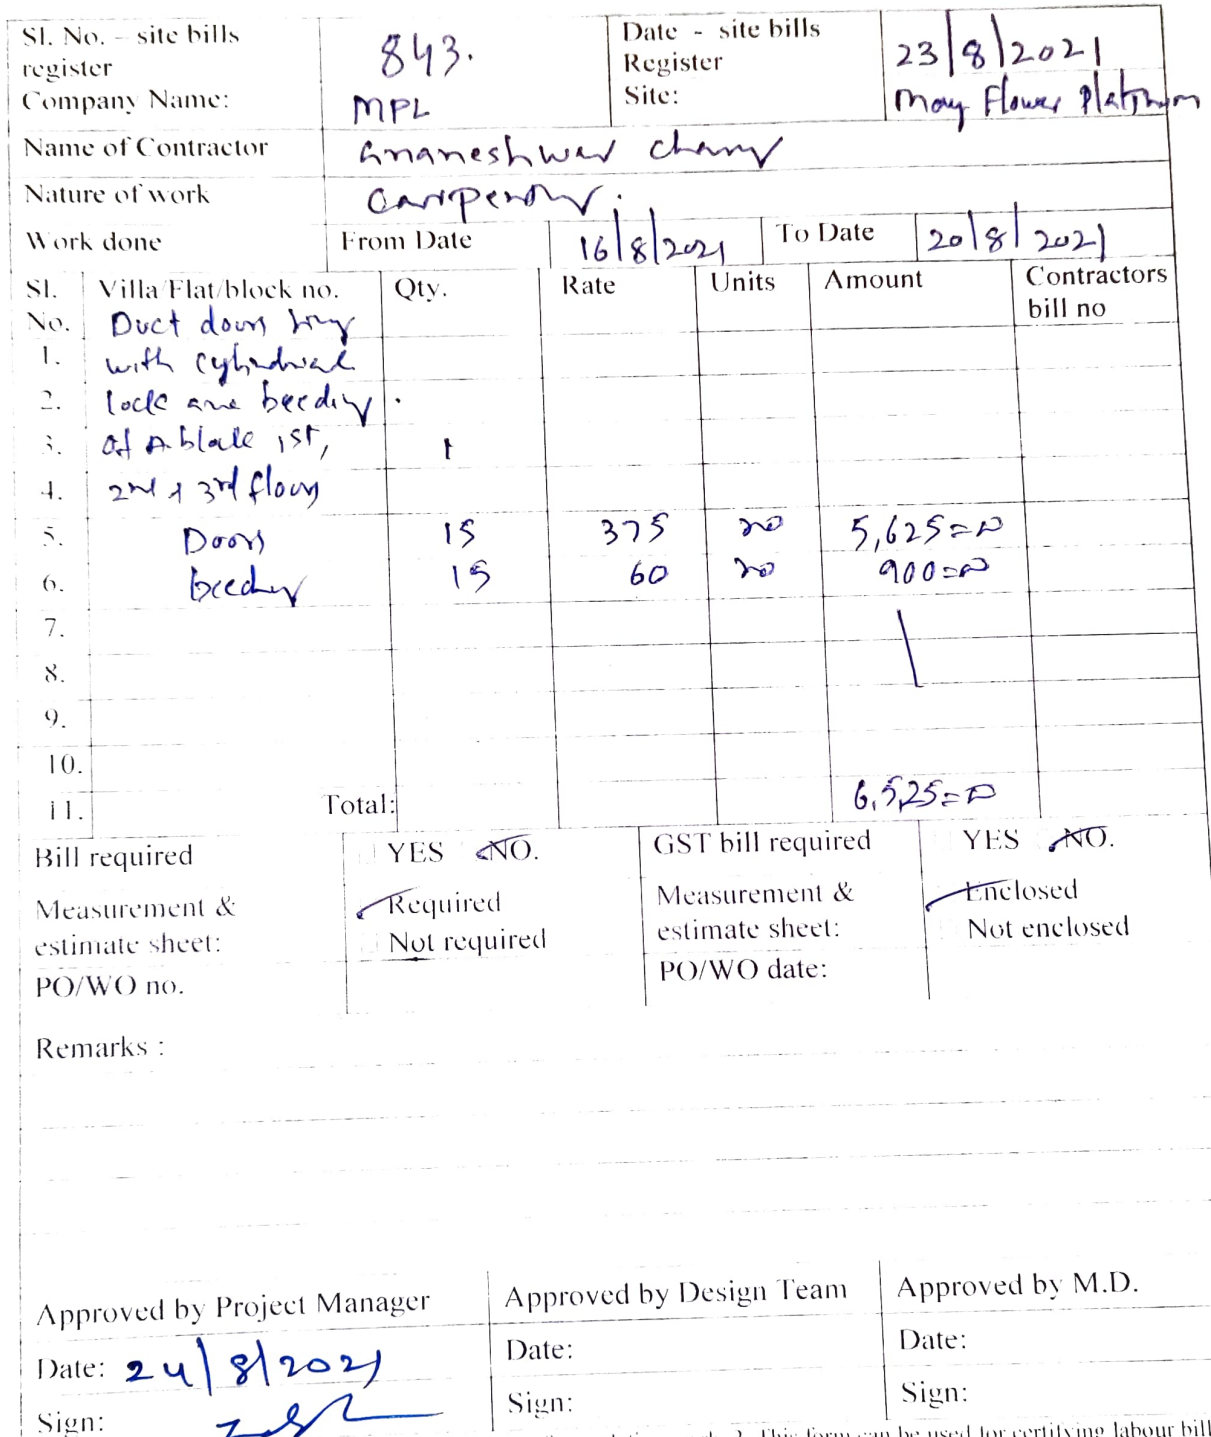 Sl. No. – site bills register 843. Date - site bills Register 23/8/2021
Company Name: MPL Site: May Flower Platinum
Name of Contractor Gnaneshwar chary
Nature of work carpentry.
Work done From Date 16/8/2021 To Date 20/8/2021
Sl. No. Villa/Flat/block no. Qty. Rate Units Amount Contractors bill no
Duct doors
1. with cylindrical
2. lock and beeding.
3. of A block 1st,
4. 2nd & 3rd floors
5. Doors 15 375 no 5,625=00
6. beeding 15 60 no 900=00
7.
8.
9.
10.
11. Total: 6,525=00
Bill required YES NO. GST bill required YES NO.
Measurement & estimate sheet: Required Not required Measurement & estimate sheet: Enclosed Not enclosed
PO/WO no. PO/WO date:
Remarks :
Approved by Project Manager Approved by Design Team Approved by M.D.
Date: 24/8/2021 Date: Date:
Sign: Sign: Sign:
This form can be used for certifying labour bill